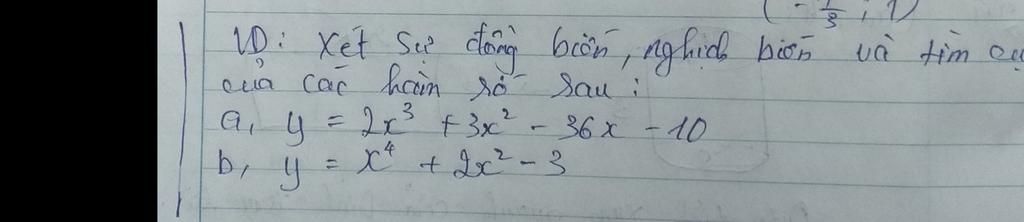 (-1/3; 1)
VD: Xét sự đồng biến, nghịch biến và tìm
của các hàm số sau:
a, y = 2x³ + 3x² - 36x - 10
b, y = x⁴ + 2x² - 3